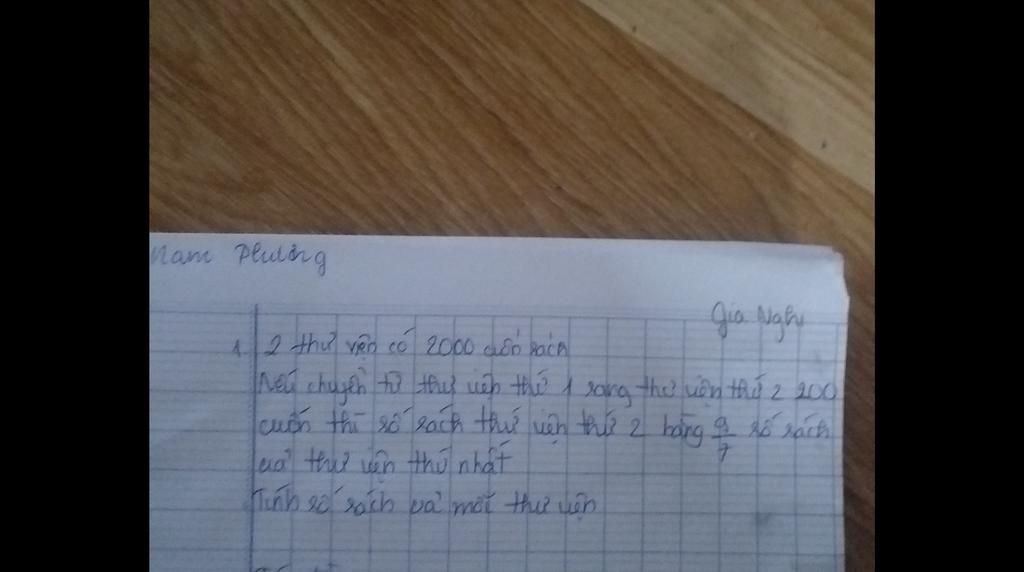 Nam Phương
Gia Nghi
1. 2 thư viện có 2000 cuốn sách
Nếu chuyển từ thư viện thứ 1 sang thư viện thứ 2 200
cuốn thì số sách thư viện thứ 2 bằng 9/7 số sách
của thư viện thứ nhất
Tính số sách của mỗi thư viện